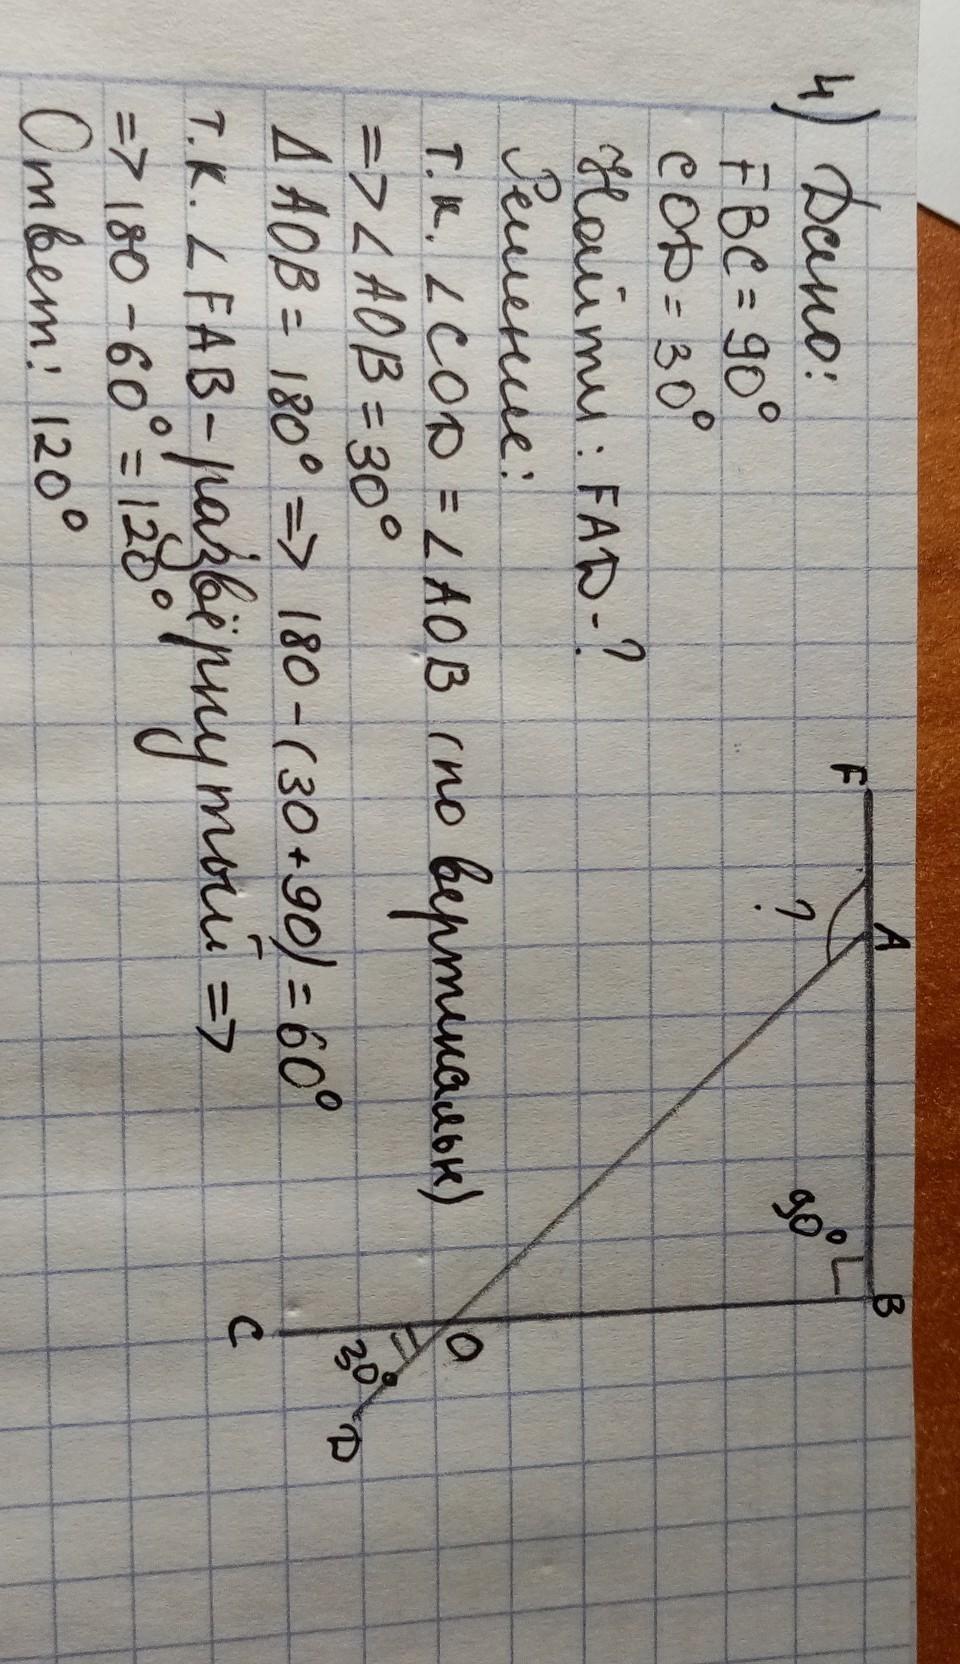 4) Дано:
FBC = 90°
COD = 30°
Найти: FAD - ?
Решение:
т.к. ∠COD = ∠AOB (по вертикальн)
=> ∠AOB = 30°
Δ AOB = 180° => 180 - (30 + 90) = 60°
т.к. ∠FAB - развёрнутый =>
=> 180 - 60° = 120°
Ответ: 120°
F
A
B
?
90°
O
C
30°
D